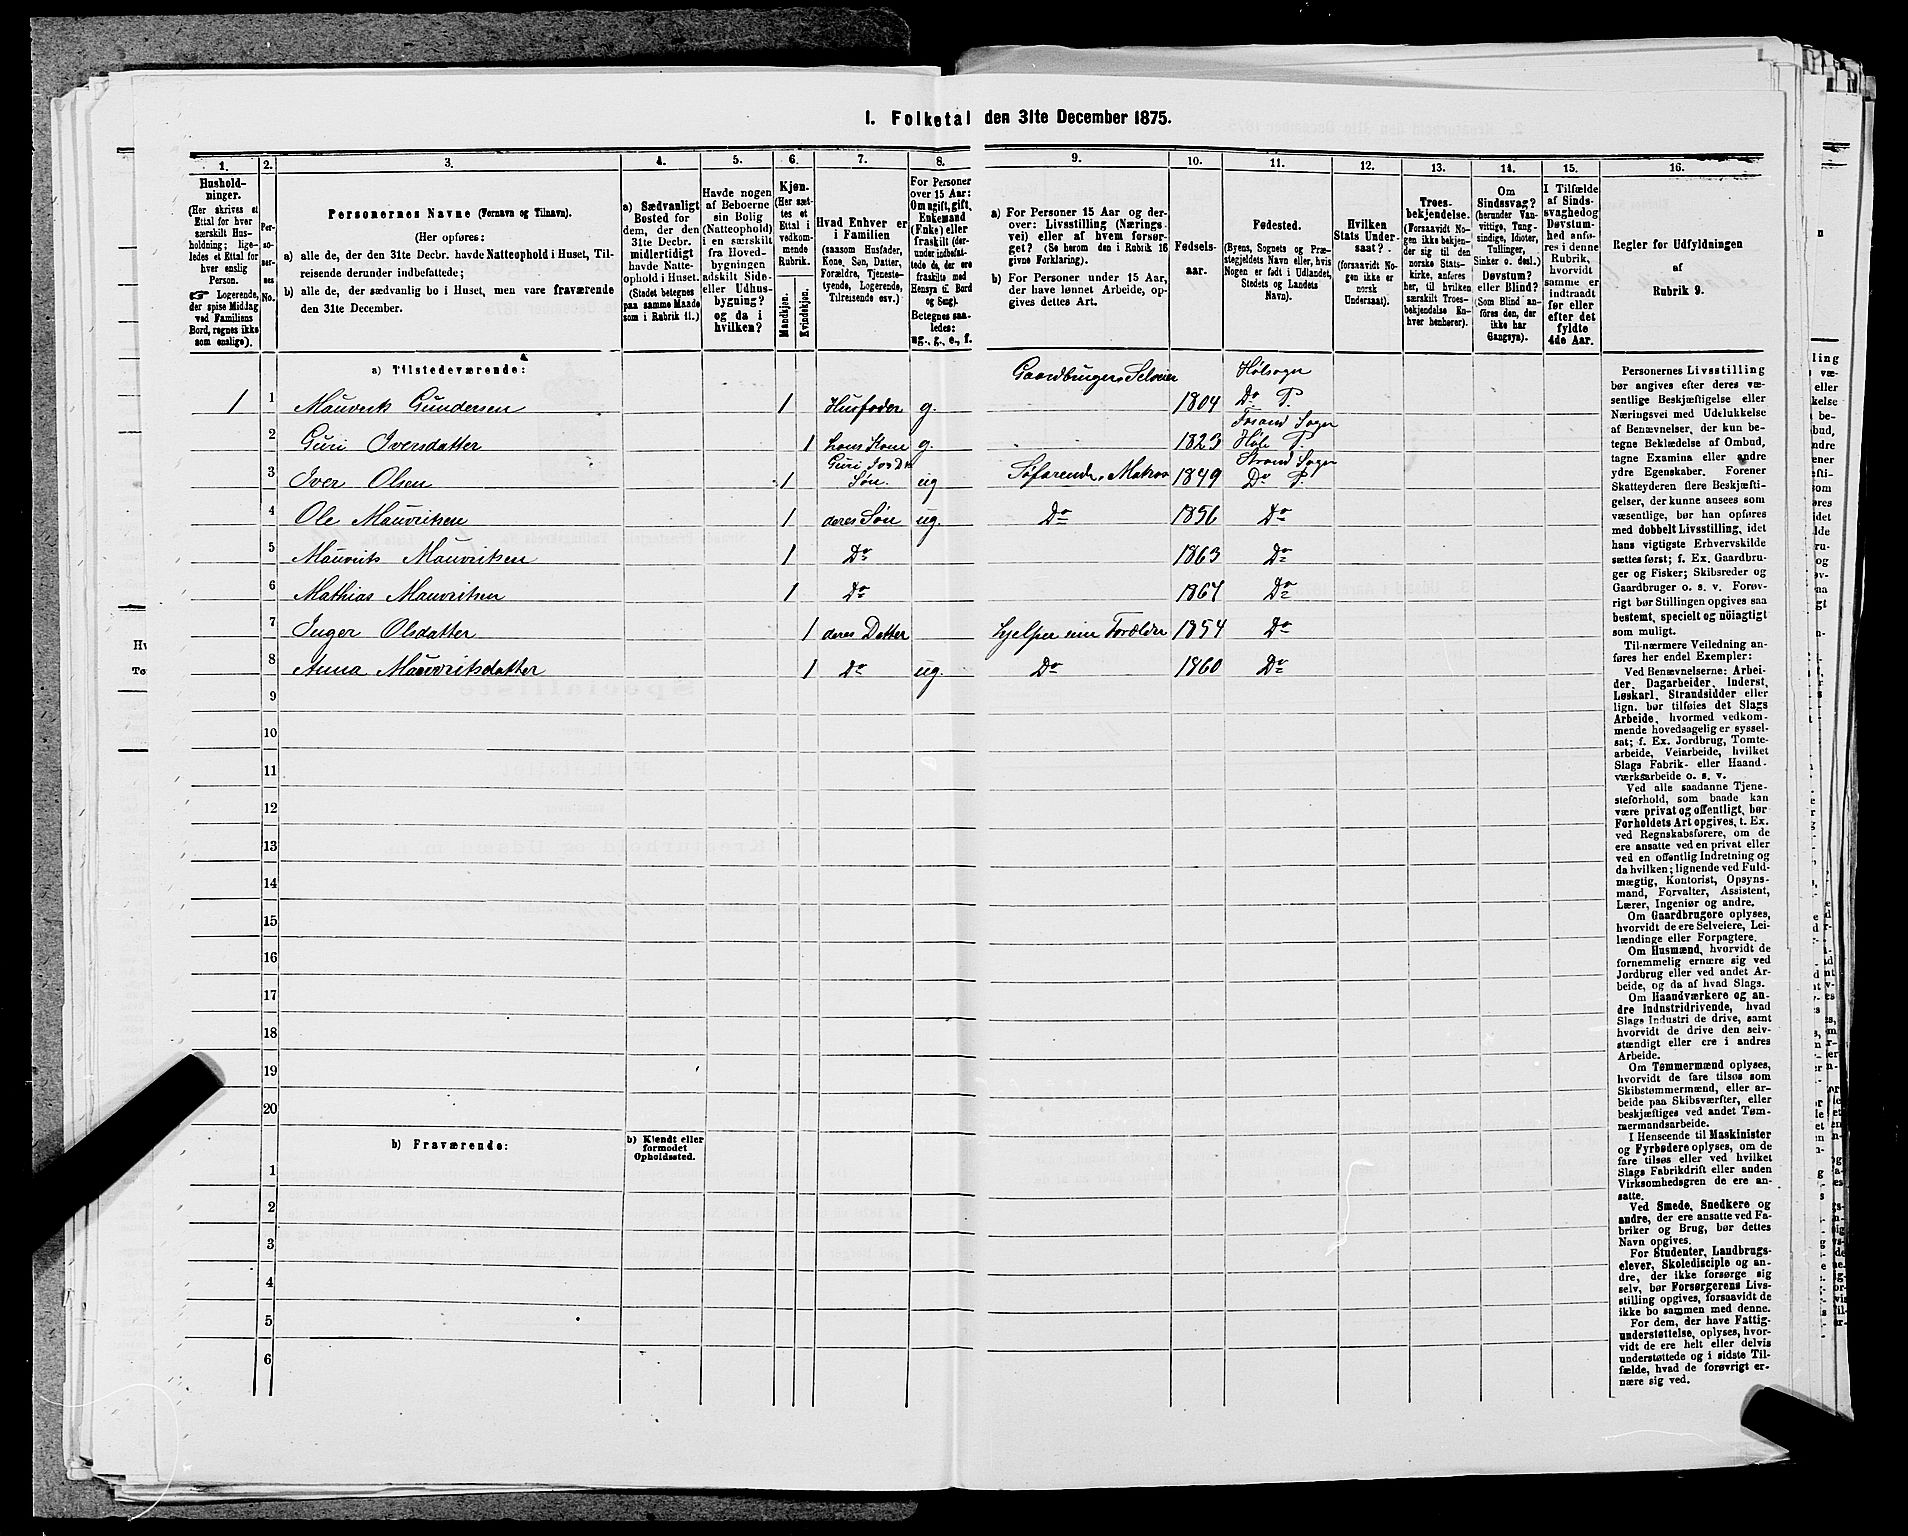 I. Folketal den 31te December 1875.
1. 2. 3. 4. 5. 6. 7. 8. 9. 10. 11. 12. 13. 14. 15. 16.
Hushold-
ninger.
(Her skrives et
Ettal for hver
særskilt Hus-
holdning; lige-
ledes et Ettal
for hver
enslig
Person.
☞ Logerende,
der spise Middag
ved Familiens
Bord, regnes ikke
som enslige).
Per-
so-
ner-
nes
No.
Personernes Navne (Fornavn og Tilnavn).
(Her opføres:
a) alle de, der den 31te Decbr. havde Natteophold i Huset, Til-
reisende derunder indbefattede;
b) alle de, der sædvanlig bo i Huset, men vare fraværende
den 31te December.
a) Sædvanligt
Bosted for
dem, der den
31te Decbr.
midlertidigt
havde Natte-
ophold i Huset.
(Stedet betegnes
paa samme Maade
som i Rubrik 11.)
Havde nogen
af Beboerne
sin Bolig
(Natteophold)
i en særskilt
fra Hoved-
bygningen
adskilt Side-
eller Udhus-
bygning?
og da i
hvilken?
Kjøn.
(Her sæt-
tes et
Ettal i
vedkom-
mende
Rubrik.
Mandkjøn.
Kvindekjøn.
Hvad Enhver er
i Familien
(saasom Husfader,
Kone, Søn, Datter,
Forældre, Tjeneste-
tyende, Logerende,
Tilreisende osv.)
For Personer
over 15 Aar:
Om ugift, gift,
Enkemand
(Enke) eller
fraskilt (der-
under indbefat-
tede de, der ere
fraskilte med
Hensyn til Bord
og Seng).
Betegnes saa-
ledes:
ug., g., e., f.
a) For Personer 15 Aar og der-
over: Livsstilling (Nærings-
vei) eller af hvem forsør-
get? (Se herom den i Rubrik 16
givne Forklaring).
b) For Personer under 15 Aar,
der have lønnet Arbeide, op-
gives dettes Art.
Fødsels-
aar.
Fødested.
(Byens, Sognets og Præ-
stegjeldets Navn eller, hvis
Nogen er født i Udlandet,
Stedets og Landets
Navn).
Hvilken
Stats Under-
saat?
(forsaavidt No-
gen ikke er
norsk
Undersaat).
Troes-
bekjendelse.
(Forsaavidt No-
gen ikke bekjen-
der sig til den
norske Stats-
kirke, anføres
her, til hvilken
særskilt Troes-
bekjendelse En-
hver henhører).
Om
Sindssvag?
(herunder Van-
vittige, Tung-
sindige, Idioter,
Tullinger,
Sinker o. desl.)
Døvstum?
eller Blind?
(Som Blind an-
føres den, der
ikke har
Gangsyn).
I Tilfælde
af Sinds-
svaghed og
Døvstum-
hed anfø-
res i denne
Rubrik,
hvorvidt
samme er
indtraadt
før eller
efter det
fyldte
4de Aar.
Regler for Udfyldningen
af
Rubrik 9.
a) Tilstedeværende:
Gaardbruger, Selveier Hølsogn
1 1 Mauverk Gundersen 1 Husfader g. 1804 Do P.
Fosand Sogn
2 Guri Iversdatter 1 hans Kone g. 1823 Høle P.
Guri Strand Sogn
3 Iver Olsen 1 Søn. ug Søfarende, Matros 1849 Do P.
4 Ole Mauvritsen 1 deres Søn ug. Do 1856 Do
5 Mauvrits Mauvritsen 1 Do 1863 Do
6 Mathias Mauvritsen 1 Do 1864 Do
7 Inger Olsdatter 1 deres Datter hjelper sine Forælder 1854 Do
8 Anna Mauvritsdatter 1 Do ug. Do 1860 Do
9
10
11
12
13
14
15
16
17
18
19
20
b) Fraværende:
b) Kjendt eller
formodet
Opholdssted.
1
2
3
4
5
6
Personernes Livsstilling
bør angives efter deres væ-
sentlige Beskjæftigelse eller
Næringsvei med Udelukkelse
af Benævnelser, der kun be-
tegne Beklædelse af Ombud,
tagne Examina eller andre
ydre Egenskaber. Forener
Skatteyderen flere Beskjæfti-
gelser, der kunne ansees som
væsentlige, bør han opføres
med dobbelt Livsstilling, idet
hans vigtigste Erhvervskilde
sættes først; f. Ex. Gaardbru-
ger og Fisker; Skibsreder og
Gaardbruger o. s. v. Forøv-
rigt bør Stillingen opgives saa
bestemt, specielt og nöiagtigt
som muligt.
Til nærmere Veiledning an-
føres her endel Exempler:
Ved Benævnelserne: Arbei-
der, Dagarbeider, Inderst,
Løskarl, Strandsidder eller
lign. bør tilføies det Slags
Arbeide, hvormed vedkom-
mende hovedsagelig er syssel-
sat; f. Ex. Jordbrug, Tomte-
arbeide, Veiarbeide, hvilket
Slags Fabrik- eller Haand-
værksarbeide o. s. v.
Ved alle saadanne Tjene-
steforhold, som baade kan
være privat og offentligt, bør
Forholdets Art opgives, t. Ex.
ved Regnskabsførere, om de
ere ansatte ved en privat eller
ved en offentlig Indretning og
da hvilken; lignende ved Fuld-
mægtig, Kontorist, Opsyns-
mand, Forvalter, Assistent,
Lærer, Ingeniør og andre.
Om Gaardbrugere oplyses,
hvorvidt de ere Selveiere, Lei-
lændinge eller Forpagtere.
Om Husmænd, hvorvidt de
fornemmelig ernære sig ved
Jordbrug eller ved andet Ar-
beide, og da af hvad Slags.
Om Haandværkere og an-
dre Industridrivende, hvad
Slags Industri de drive, samt
hvorvidt de drive den selv-
stændigt eller ere i andres
Arbeide.
Om Tømmermænd oplyses,
hvorvidt de fare tilsøs som
Skibstømmermænd, eller ar-
beide paa Skibsværfter, eller
beskjæftiges ved andet Tøm-
mermandsarbeide.
I Henseende til Maskinister
og Fyrbødere oplyses, om de
fare tilsøs eller ved hvilket
Slags Fabrikdrift eller anden
Virksomhedsgren de ere an-
satte.
Ved Smede, Snedkere og
andre, der ere ansatte ved Fa-
briker og Brug, bør dettes
Navn opgives.
For Studenter, Landbrugs-
elever, Skoledisciple og an-
dre, der ikke forsørge sig
selv, bør Forsørgerens Livs-
stilling opgives, forsaavidt de
ikke bo sammen med denne.
For dem, der have Fattig-
understøttelse, oplyses, hvor-
vidt de ere helt eller delvis
understøttede og i sidste Til-
fælde, hvad de forøvrigt er-
nære sig ved.